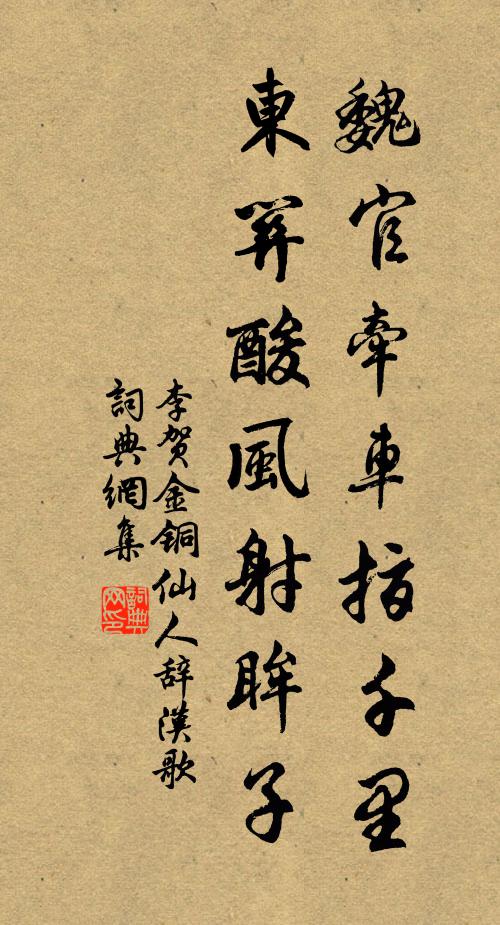 魏官牽車指千里
東關酸風射眸子
李賀金銅仙人辞漢歌
詞典網集
詞典
网印